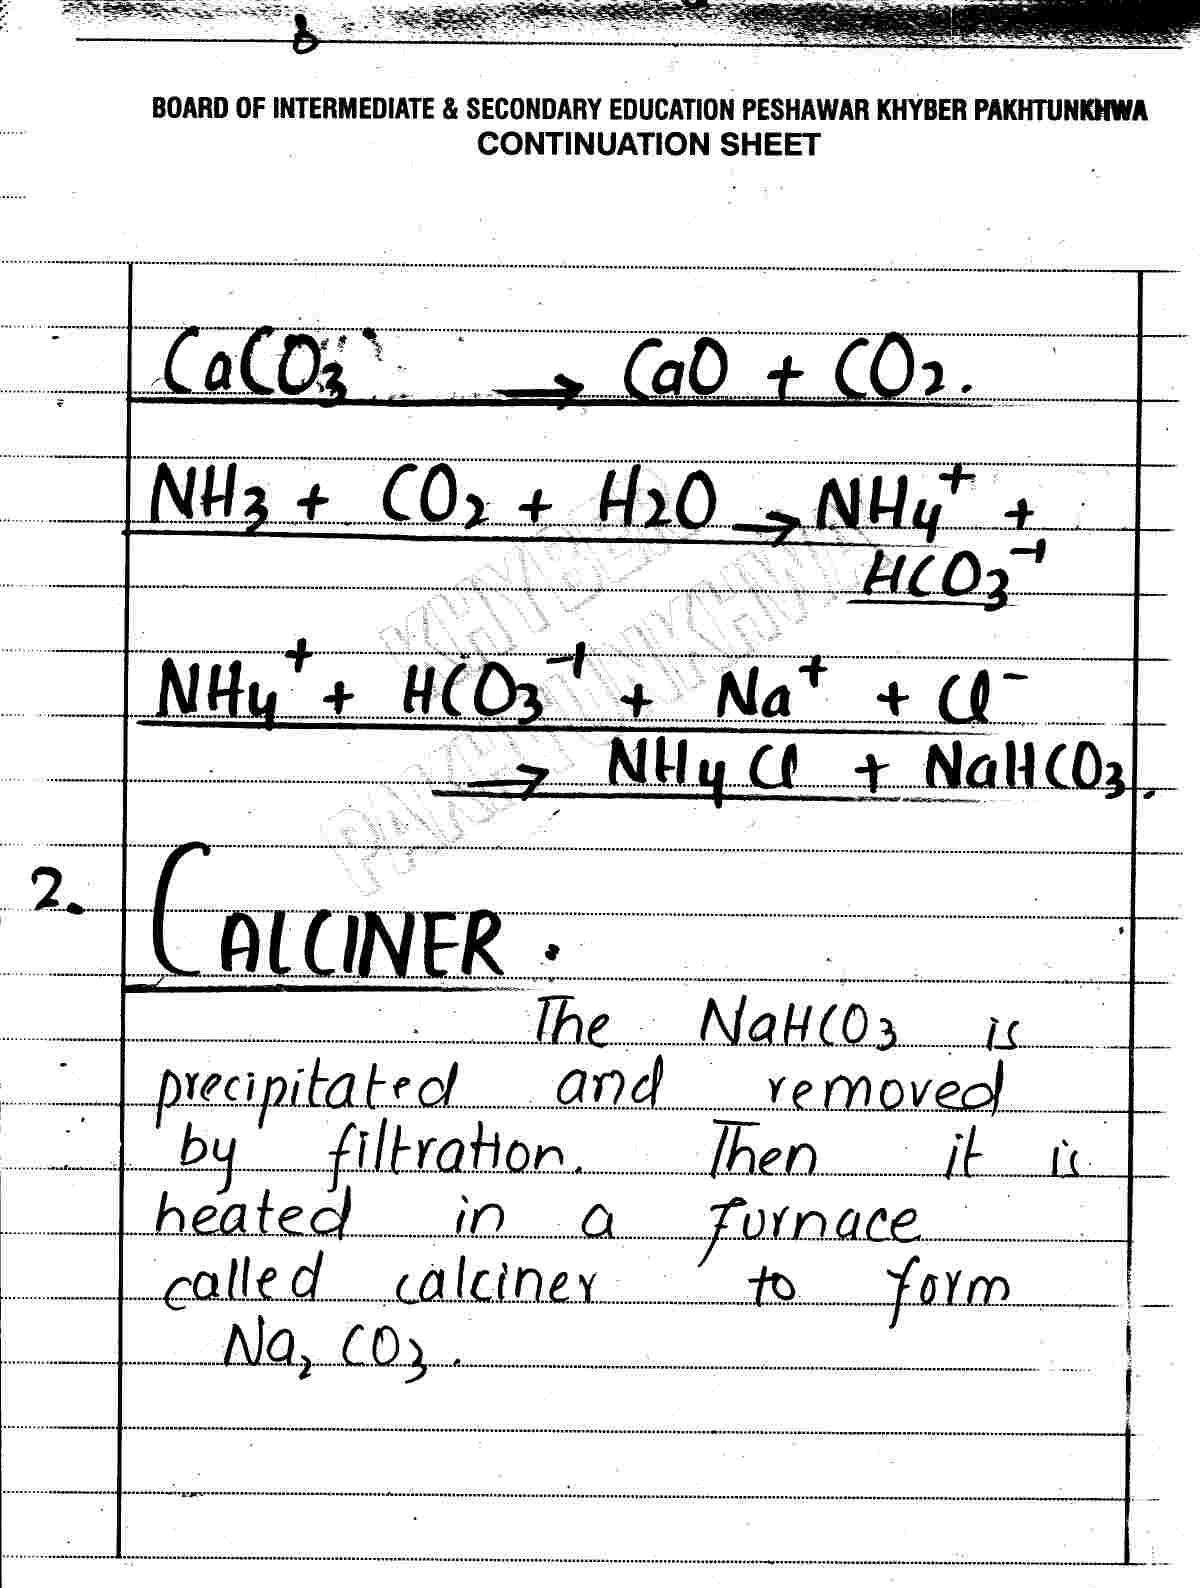 3
BOARD OF INTERMEDIATE & SECONDARY EDUCATION PESHAWAR KHYBER PAKHTUNKHWA
CONTINUATION SHEET
CaCO3 → CaO + CO2.
NH3 + CO2 + H2O → NH4⁺ +
HCO3⁻¹
NH4⁺ + HCO3⁻¹ + Na⁺ + Cl⁻
→ NH4Cl + NaHCO3.
KHYBER
PAKHTUNKHWA
2. CALCINER.
The NaHCO3 is
precipitated and removed
by filtration. Then it is
heated in a furnace
called calciner to form
Na2 CO3.